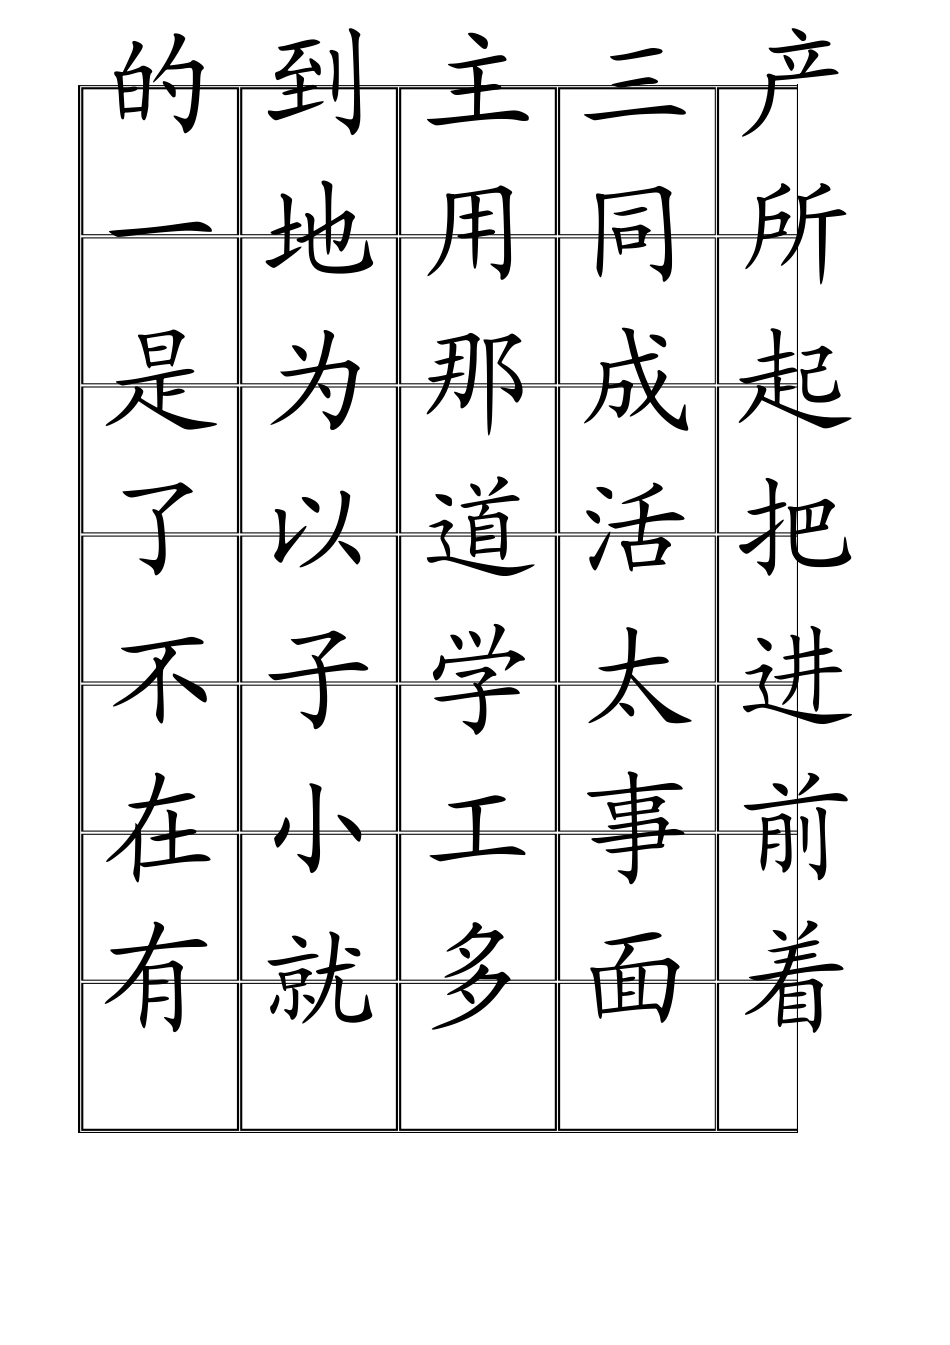 的 到 主 三 产
一 地 用 同 所
是 为 那 成 起
了 以 道 活 把
不 子 学 太 进
在 小 工 事 前
有 就 多 面 着